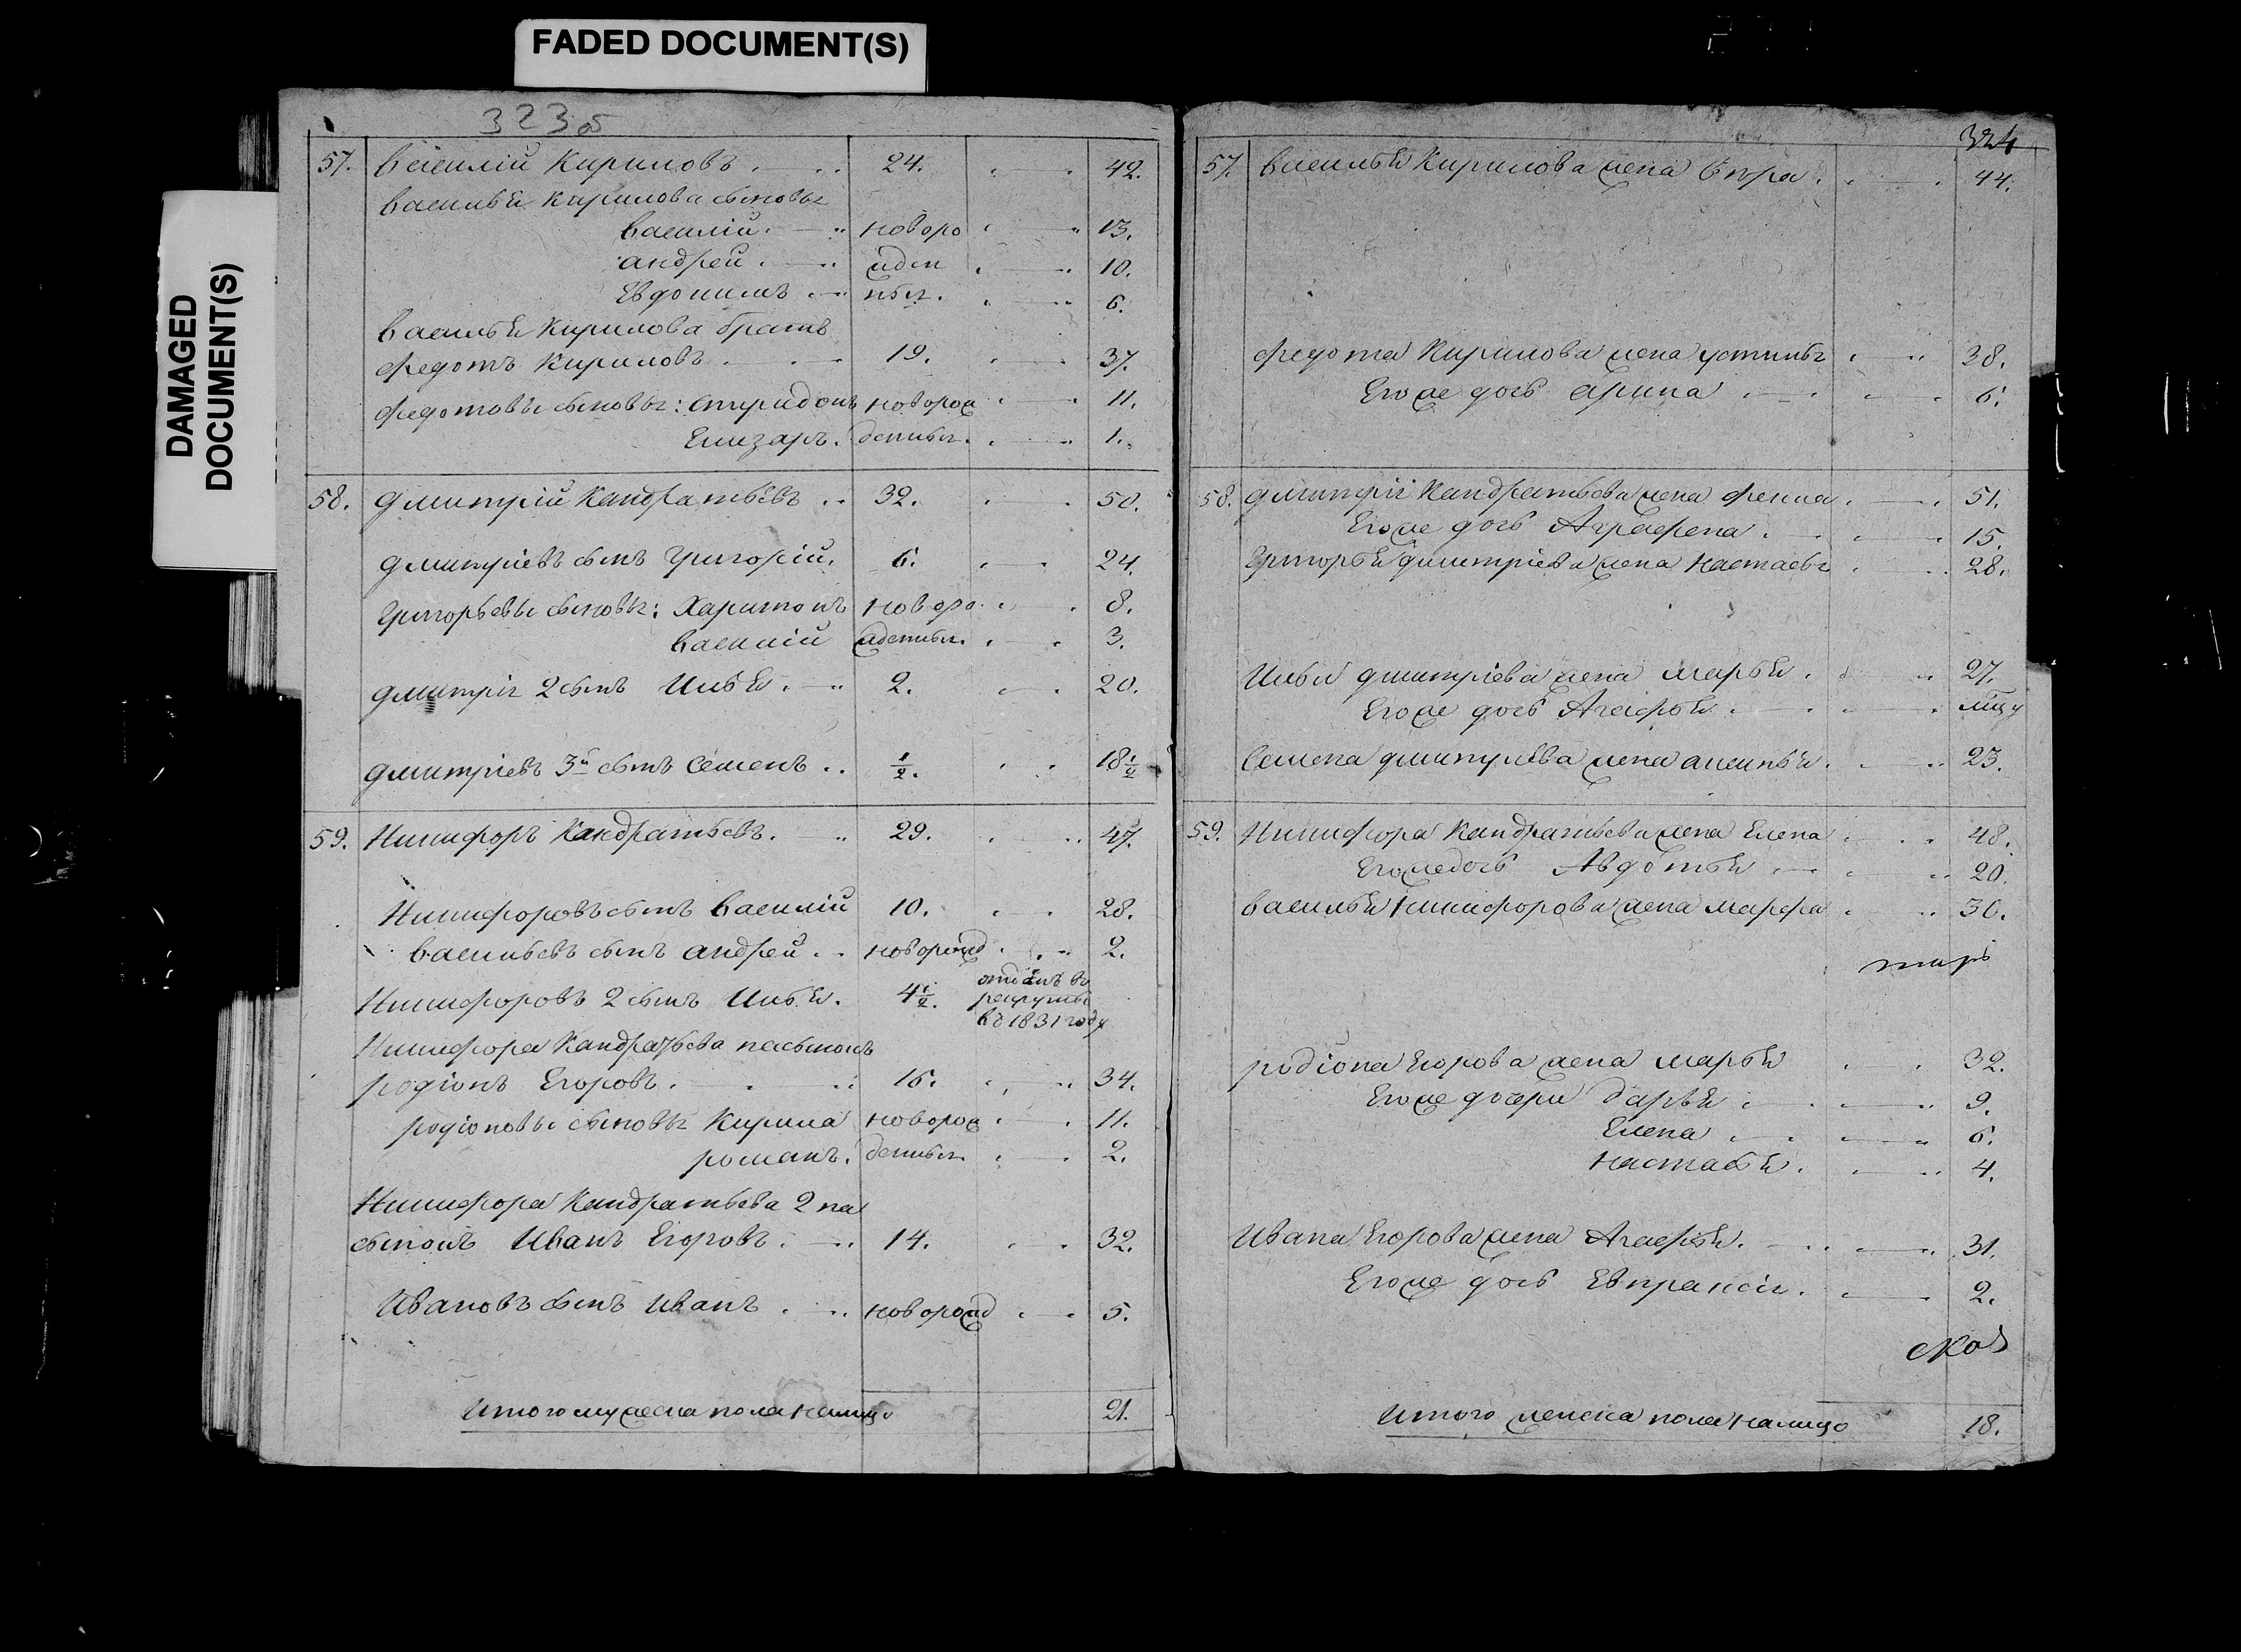 FADED DOCUMENT(S)
DAMAGED
DOCUMENT(S)
323 об
57. Василій Кириловъ 24. 42.
Василья Кирилова сыновья
Василій новоро 13.
Андрей жден 10.
Евдокимъ ныя. 6.
Василья Кирилова братъ
Федотъ Кириловъ 19. 37.
Федотовы сыновья: Спиридонъ новорож 11.
Елизаръ. денныя. 1.
58. Дмитрій Кандратьевъ 32. 50.
Дмитріевъ сынъ Григорій. 6. 24.
Григорьевы сыновья: Харитонъ новоро 8.
Василій жденныя. 3.
Дмитрія 2 сынъ Илья 2. 20.
Дмитріевъ 3й сынъ Семенъ 1/2. 18 1/2
59. Никифоръ Кандратьевъ. 29. 47.
Никифоровъ сынъ Василій 10. 28.
Васильевъ сынъ Андрей новорожд 2.
Никифоровъ 2 сынъ Илья. 4 1/2. отданъ въ
рекруты
въ 1831 году
Никифора Кандратьева пасынокъ
Родіонъ Егоровъ. 16. 34.
Родіоновы сыновья Кирила новорож 11.
Романъ. денныя. 2.
Никифора Кандратьева 2 па
сынокъ Иванъ Егоровъ 14. 32.
Ивановъ сынъ Иванъ новорожд 5.
Итого мужеска пола налицо 21.
324
57. Василья Кирилова жена 44.
Федота Кирилова жена Устинья 38.
Егоже дочь Арина 6.
58. Дмитрія Кандратьева жена Фекла 51.
Егоже дочь Аграфена 15.
Григорья Дмитріева жена Настасья 28.
Ильи Дмитріева жена Марья 27.
Егоже дочь Агафья
Семена Дмитріева жена Аксинья 23.
59. Никифора Кандратьева жена Елена 48.
Егоже дочь Авдотья 20.
Василья Никифорова жена Марфа 30.
Родіона Егорова жена Марья 32.
Егоже дочери Дарья 9.
Елена 6.
Настасья. 4.
Ивана Егорова жена Агафья. 31.
Егоже дочь Евпраксія. 2.
Итого женска пола налицо 18.